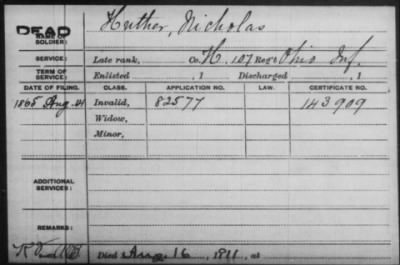 DEAD Huther, Nicholas
NAME OF SOLDIER:
SERVICE: Late rank, Co. H, 107 Reg't Ohio Inf.
TERM OF SERVICE: Enlisted , 1 Discharged , 1
DATE OF FILING. CLASS. APPLICATION NO. LAW. CERTIFICATE NO.
1865 Aug. Invalid, 82577 143909
Widow,
Minor,
ADDITIONAL SERVICES:
REMARKS:
Died Aug 16, 1911, at